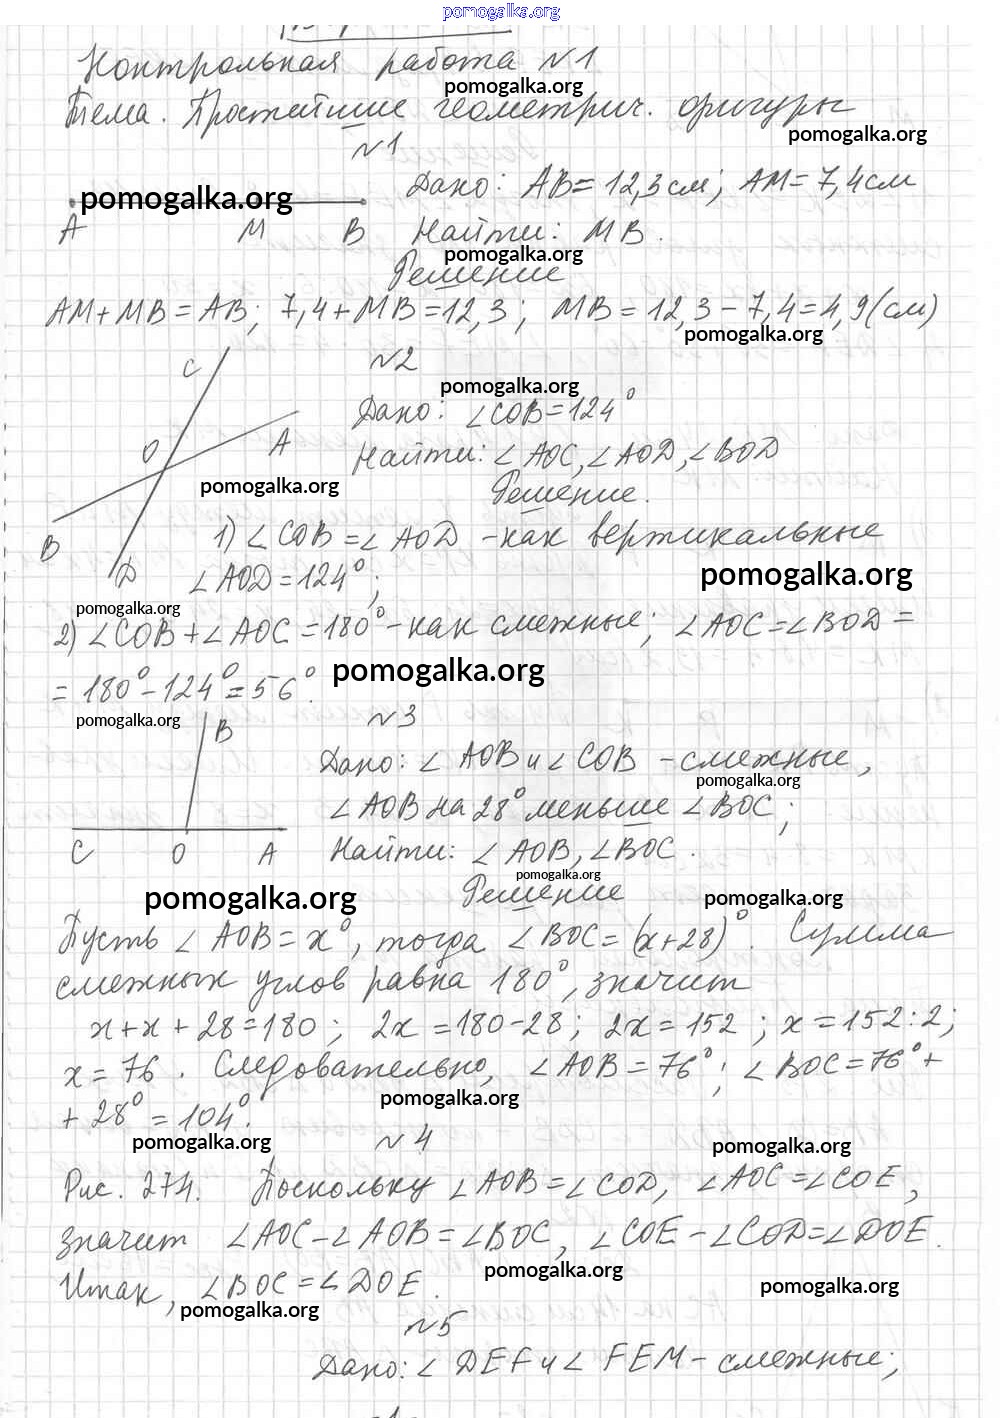 pomogalka.org
Контрольная работа №1
pomogalka.org
Тема. Простейшие геометрич. фигуры
pomogalka.org
№1
Дано: AB = 12,3 см; AM = 7,4 см
pomogalka.org
A M B Найти: MB.
pomogalka.org
Решение
AM + MB = AB; 7,4 + MB = 12,3; MB = 12,3 - 7,4 = 4,9 (см)
pomogalka.org
№2
C
pomogalka.org
Дано: ∠COB = 124°
O A
Найти: ∠AOC, ∠AOD, ∠BOD
pomogalka.org
Решение.
B
1) ∠COB = ∠AOD - как вертикальные
D
∠AOD = 124°;
pomogalka.org
pomogalka.org
2) ∠COB + ∠AOC = 180° - как смежные; ∠AOC = ∠BOD =
= 180° - 124° = 56°.
pomogalka.org
pomogalka.org
№3
B
Дано: ∠AOB и ∠COB - смежные,
pomogalka.org
∠AOB на 28° меньше ∠BOC;
C O A
Найти: ∠AOB, ∠BOC.
pomogalka.org
Решение
pomogalka.org
pomogalka.org
Пусть ∠AOB = x°, тогда ∠BOC = (x+28)°. Сумма
смежных углов равна 180°, значит
x + x + 28 = 180; 2x = 180 - 28; 2x = 152; x = 152 : 2;
x = 76. Следовательно, ∠AOB = 76°; ∠BOC = 76° +
pomogalka.org
+ 28° = 104°.
pomogalka.org
№4
pomogalka.org
Рис. 274. Поскольку ∠AOB = ∠COD, ∠AOC = ∠COE,
значит ∠AOC - ∠AOB = ∠BOC, ∠COE - ∠COD = ∠DOE.
pomogalka.org
Итак, ∠BOC = ∠DOE.
pomogalka.org
pomogalka.org
№5
Дано: ∠DEF и ∠FEM - смежные;